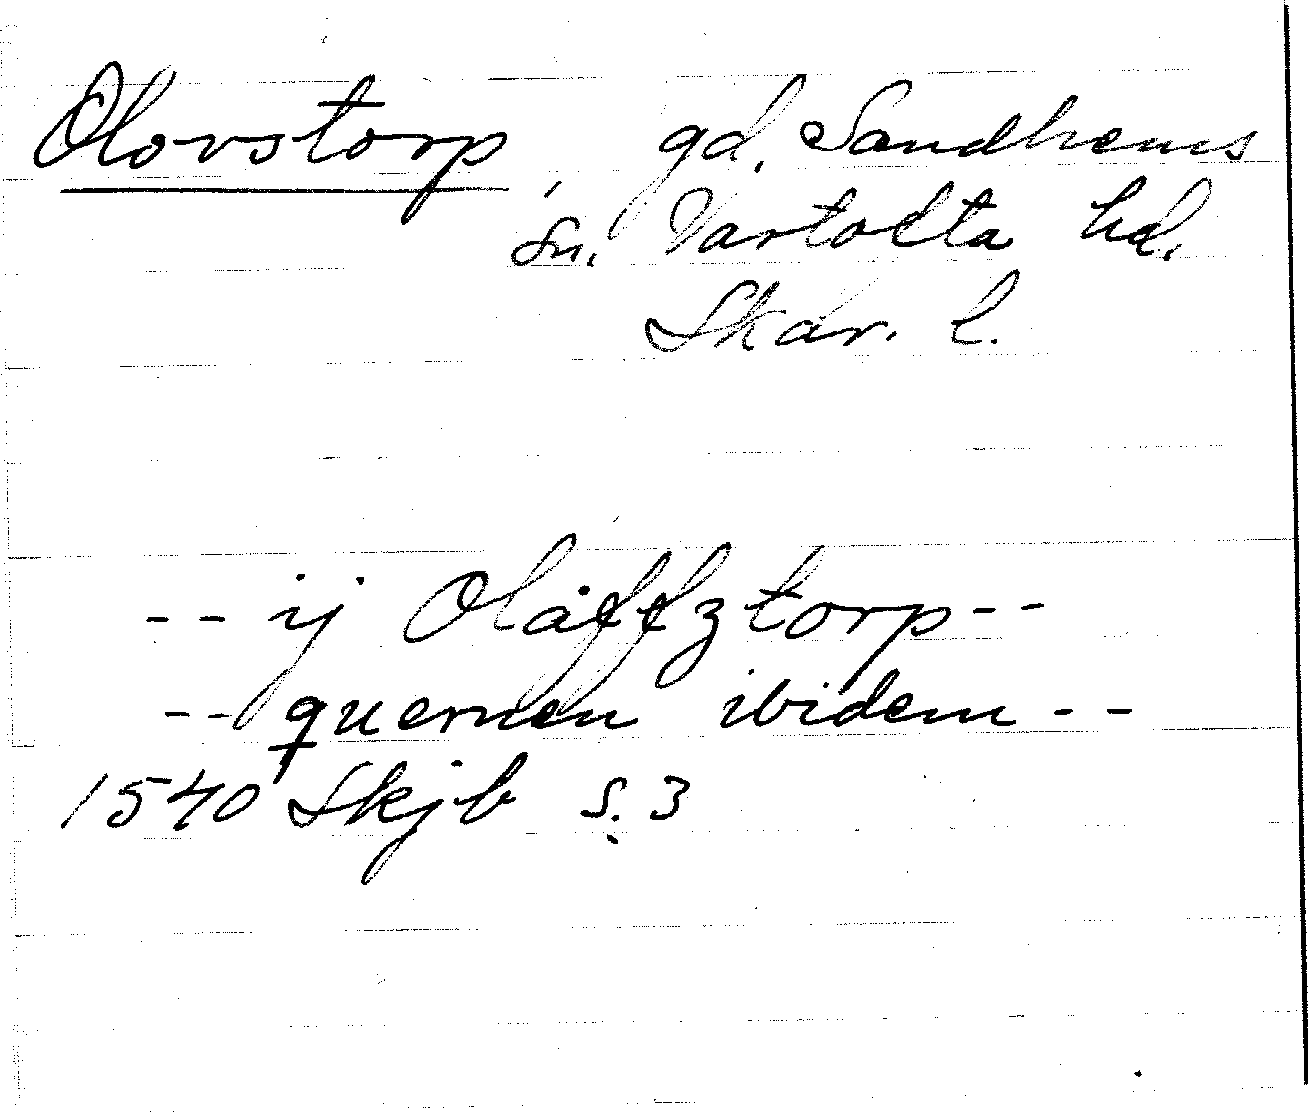 Olovstorp, gd. Sandhems
sn. Vartofta hd.
Skar. l.
-- ij Olåffztorp --
-- quernen ibidem --
1540 Skjb s. 3